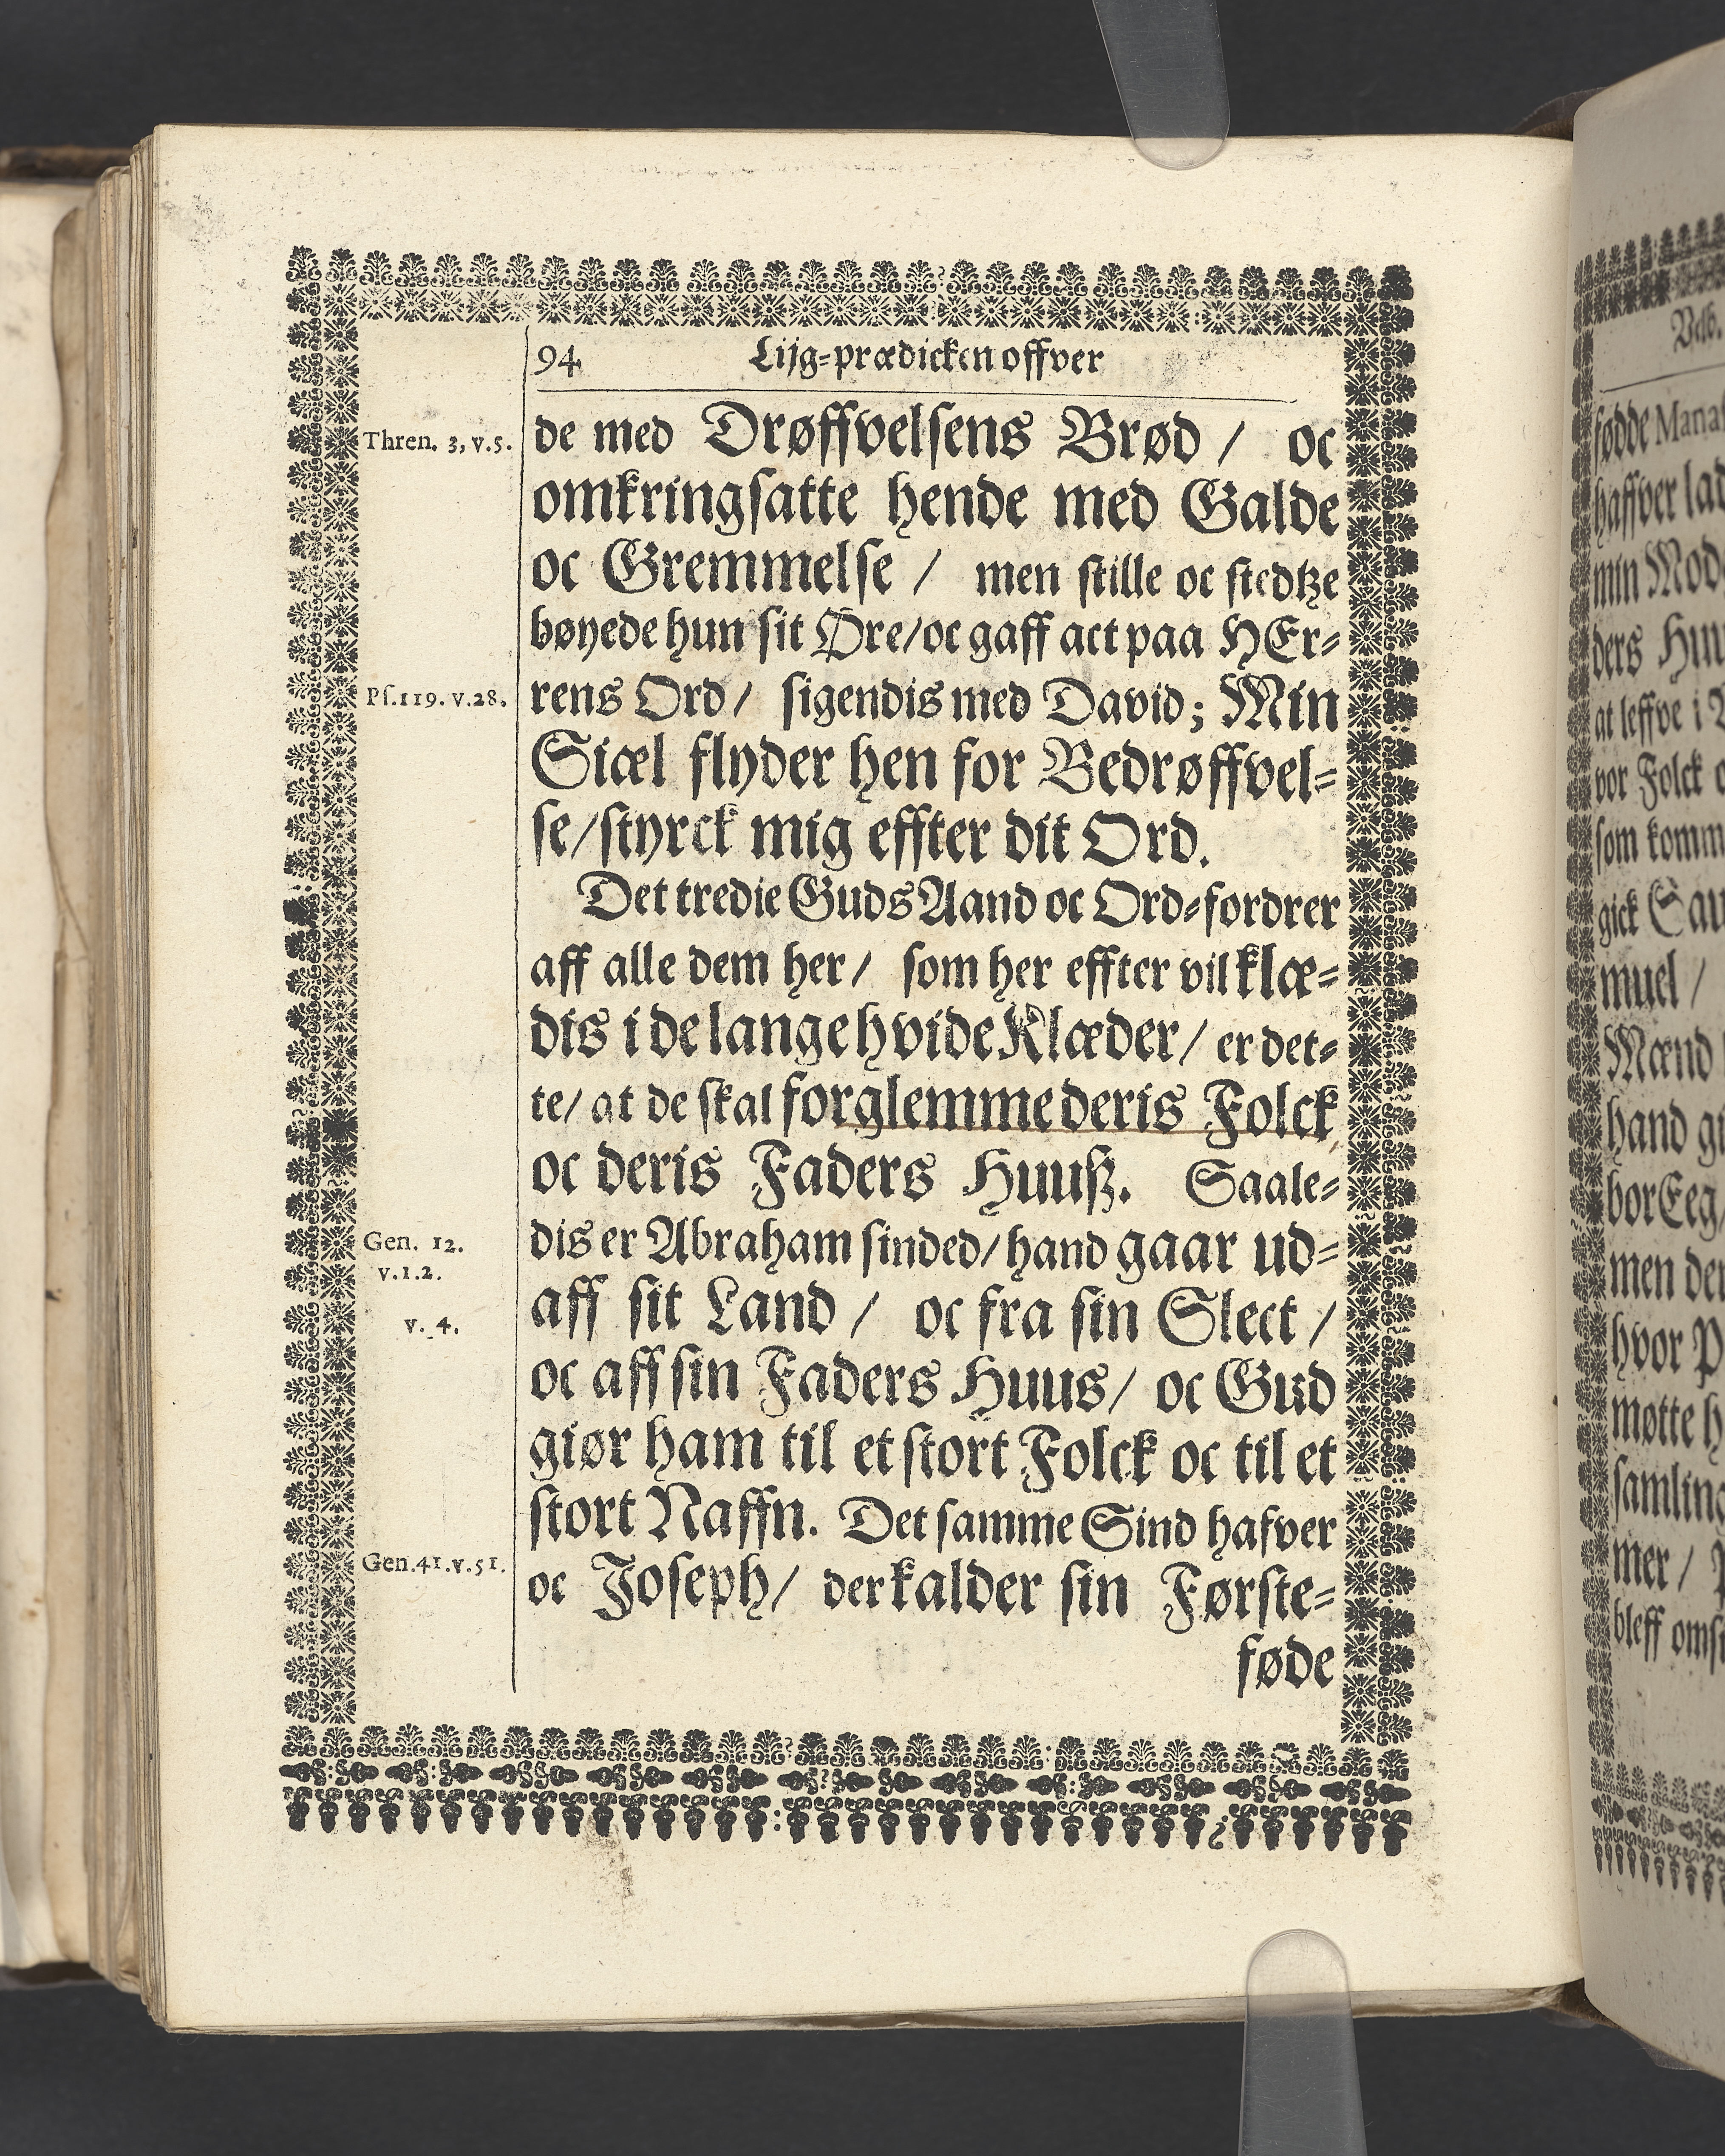 94 Lijg-prædicken offver
Thren. 3, v.5.
de med Drøffvelsens Brød / oc
omkringsatte hende med Galde
oc Gremmelse / men stille oc stedtze
bøyede hun sit Øre/oc gaff act paa HEr-
Ps.119. v.28.
rens Ord / sigendis med David; Min
Siæl flyder hen for Bedrøffvel-
se/styrck mig effter dit Ord.
Det tredie Guds Aand oc Ord-fordrer
aff alle dem her / som her effter vil klæ-
dis i de lange hvide Klæder / er det-
te/ at de skal forglemme deris Folck
oc deris Faders Huuß. Saale-
Gen. 12.
v.1.2.
dis er Abraham sinded/hand gaar ud-
v. 4.
aff sit Land / oc fra sin Slect /
oc aff sin Faders Huus/ oc Gud
giør ham til et stort Folck oc til et
stort Naffn. Det samme Sind hafver
Gen.41.v.51.
oc Joseph/ der kalder sin Første-
føde
fødde
haffver
min
ders
at leffve i
vor Folck
som
gick
muel /
Mænd
hand
bor Eeg
men
hvor
møtte
mer /
bleff